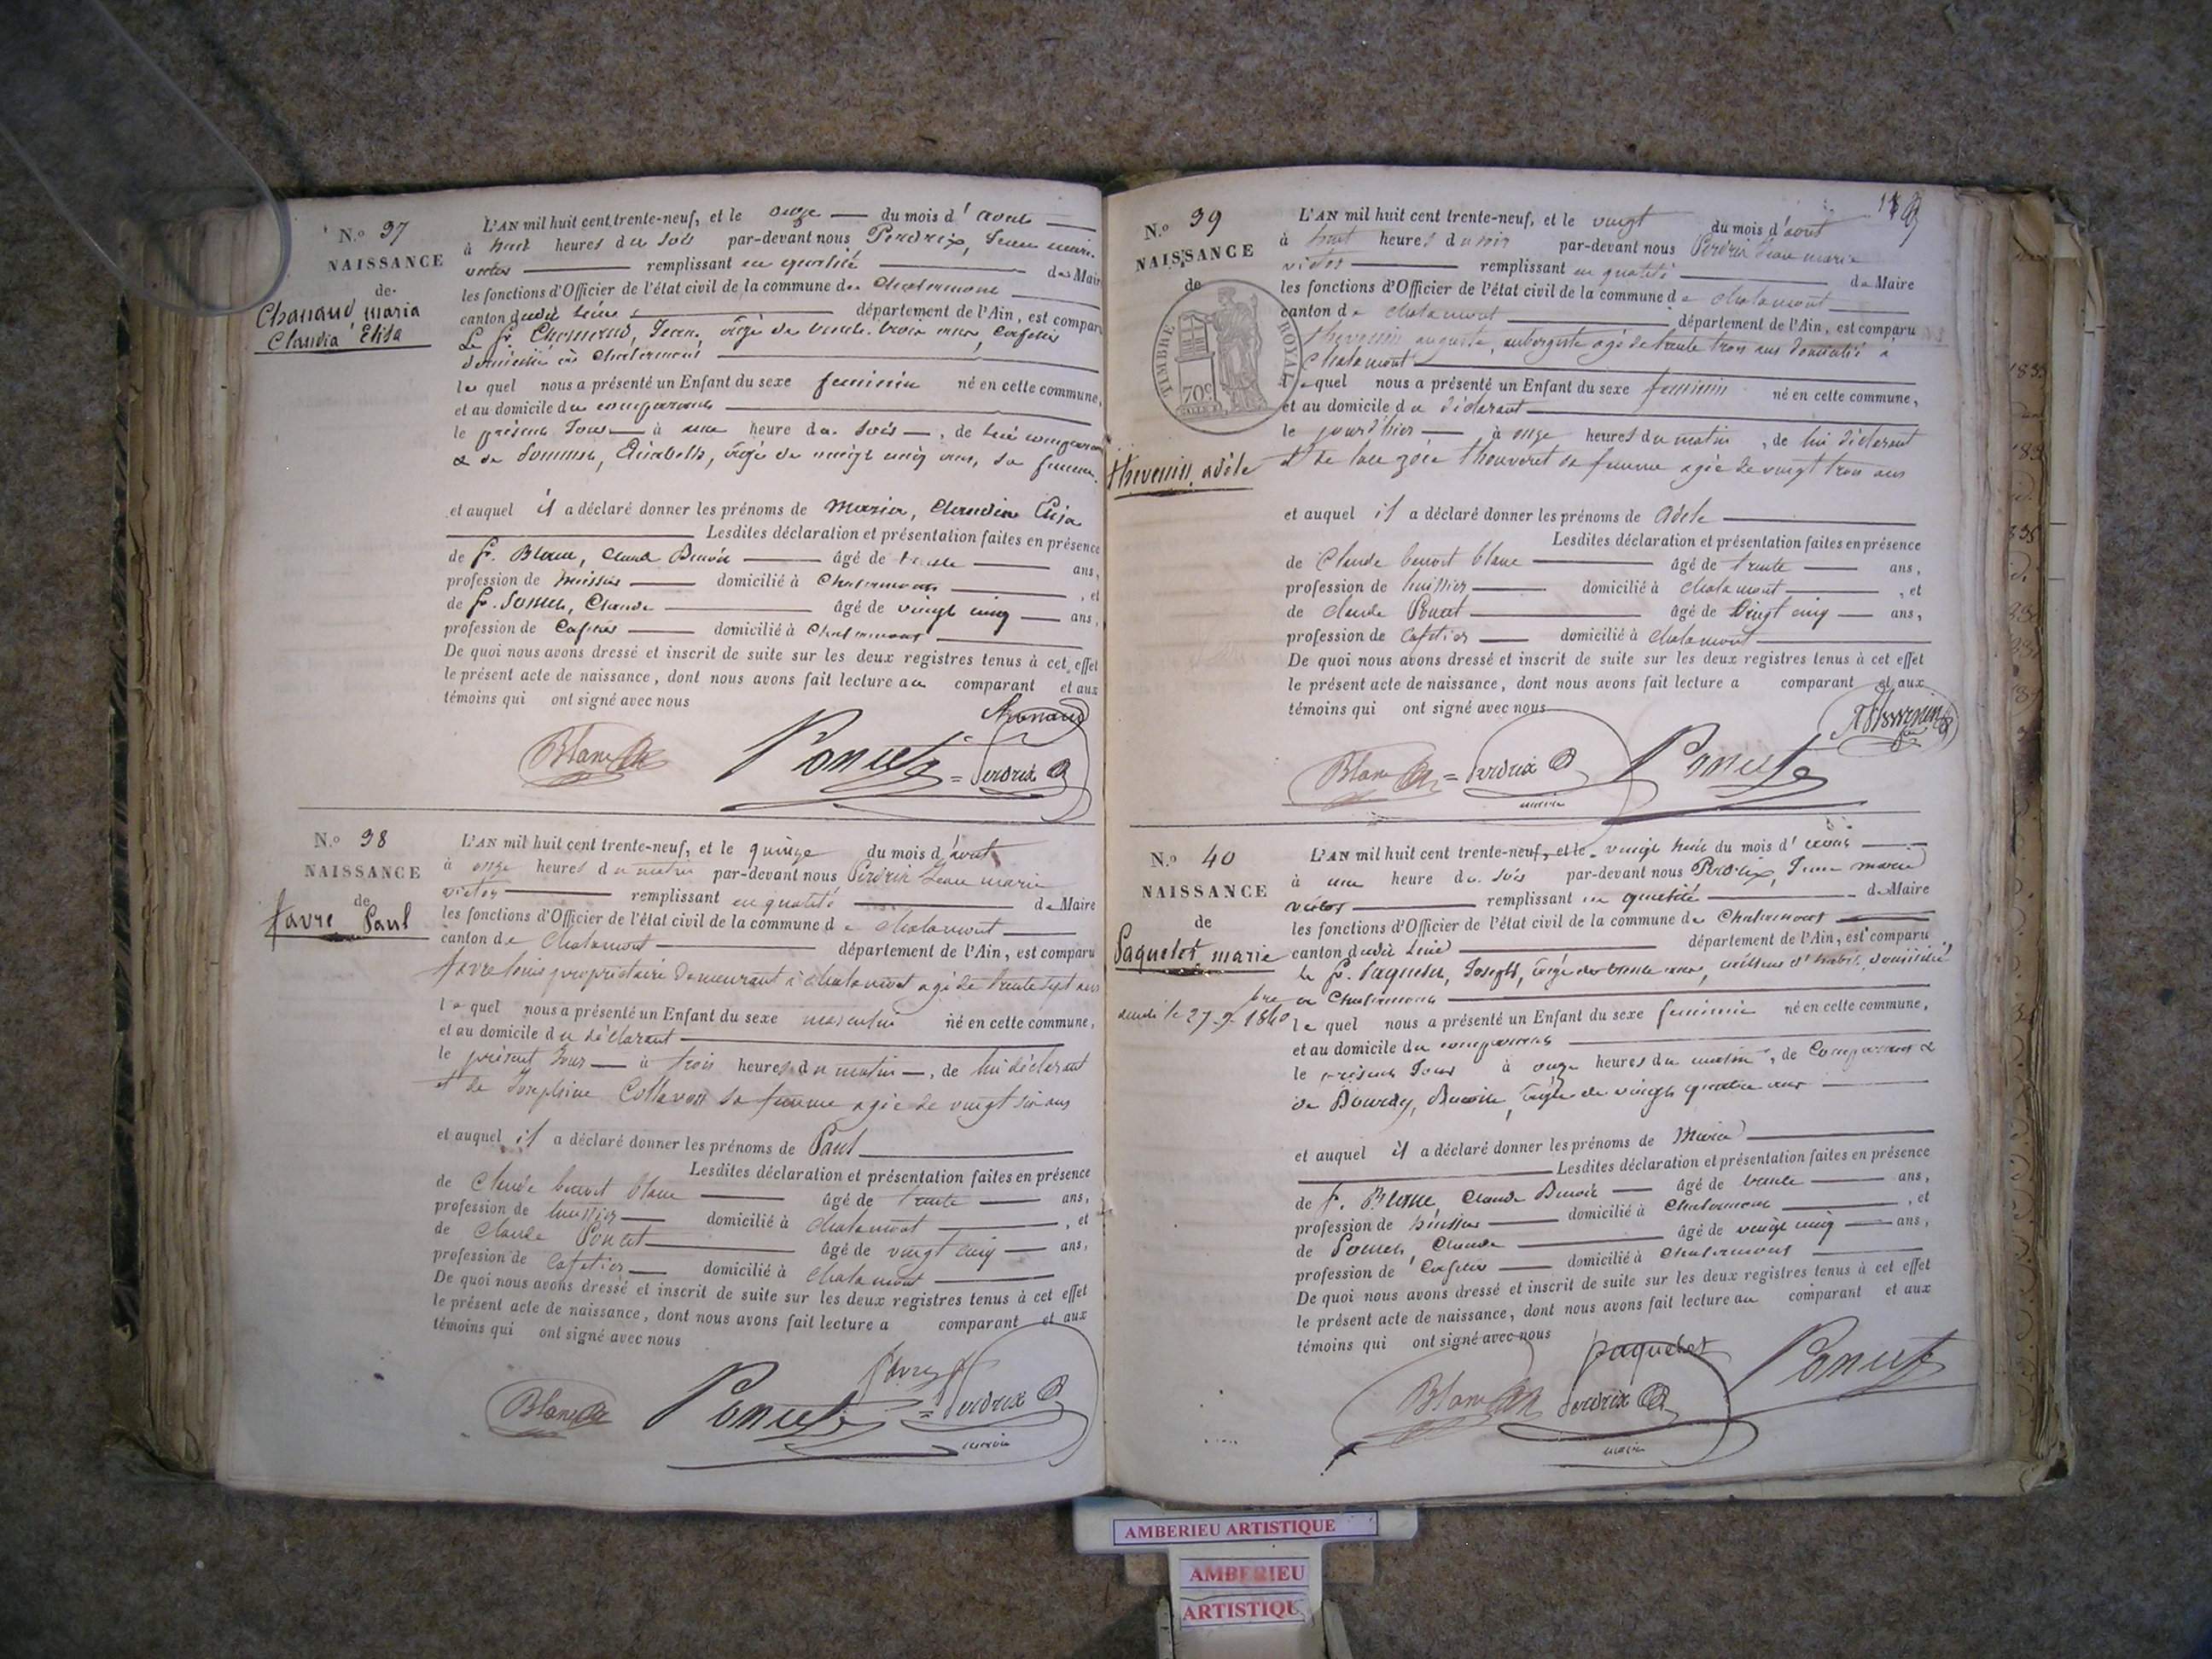 N.o 37
NAISSANCE
de
Chanaud maria
Claudia Elisa
L'AN mil huit cent trente-neuf, et le onze du mois d'
à huit heures du soir par-devant nous Perdrix, Jean marie
victor remplissant en qualité de Maire
les fonctions d'Officier de l'état civil de la commune de Chalamont
canton dudit lieu département de l'Ain, est comparu
Le Sr. Jean, âgé de trente trois ans, Cafetier
domicilié à Chalamont
lequel nous a présenté un Enfant du sexe feminin né en cette commune,
et au domicile du comparant
le présent Jour à une heure du soir, de lui comparant
& de âgée de vingt cinq ans, sa femme
et auquel il a déclaré donner les prénoms de Maria, Claudia Elisa
Lesdites déclaration et présentation faites en présence
de Sr. Blanc, Claude Benoit âgé de trente ans,
profession de huissier domicilié à Chalamont, et
de Sr. Poncet, Claude âgé de vingt cinq ans,
profession de Cafetier domicilié à Chalamont
De quoi nous avons dressé et inscrit de suite sur les deux registres tenus à cet effet
le présent acte de naissance, dont nous avons fait lecture au comparant et aux
témoins qui ont signé avec nous
Chanaud
Blanc Poncet Perdrix
N.o 38
NAISSANCE
de
favre Paul
L'AN mil huit cent trente-neuf, et le quinze du mois d'aout
à onze heures du matin par-devant nous Perdrix Jean marie
victor remplissant en qualité de Maire
les fonctions d'Officier de l'état civil de la commune de chalamont
canton de chalamont département de l'Ain, est comparu
favre louis propriétaire demeurant à chalamont agé de trente sept ans
lequel nous a présenté un Enfant du sexe masculin né en cette commune,
et au domicile du déclarant
le présent Jour à trois heures du matin, de lui déclarant
et de Josephine sa femme agée de vingt six ans
et auquel il a déclaré donner les prénoms de Paul
Lesdites déclaration et présentation faites en présence
de Claude benoit blanc âgé de trente ans,
profession de huissier domicilié à chalamont, et
de claude Poncet âgé de vingt cinq ans,
profession de Cafetier domicilié à chalamont
De quoi nous avons dressé et inscrit de suite sur les deux registres tenus à cet effet
le présent acte de naissance, dont nous avons fait lecture a comparant et aux
témoins qui ont signé avec nous
favre
Blanc Poncet Perdrix
maire
N.o 39
NAISSANCE
de
TIMBRE ROYAL
70c
thevenin, adèle
L'AN mil huit cent trente-neuf, et le vingt du mois d'aout
à huit heures du soir par-devant nous Perdrix Jean marie
victor remplissant en qualité de Maire
les fonctions d'Officier de l'état civil de la commune de chalamont
canton de chalamont département de l'Ain, est comparu
thevenin auguste, aubergiste agé de trente trois ans domicilié à
Chalamont
lequel nous a présenté un Enfant du sexe feminin né en cette commune,
et au domicile du déclarant
le jour d'hier à onze heures du matin, de lui déclarant
et de zoée thouveret sa femme agée de vingt trois ans
et auquel il a déclaré donner les prénoms de Adele
Lesdites déclaration et présentation faites en présence
de Claude benoit blanc âgé de trente ans,
profession de huissier domicilié à chalamont, et
de claude Poncet âgé de Vingt cinq ans,
profession de cafetier domicilié à chalamont
De quoi nous avons dressé et inscrit de suite sur les deux registres tenus à cet effet
le présent acte de naissance, dont nous avons fait lecture a comparant et aux
témoins qui ont signé avec nous
Blanc Perdrix Poncet
maire
N.o 40
NAISSANCE
de
Paquelet marie
L'AN mil huit cent trente-neuf, et le vingt huit du mois d'
à une heure du soir par-devant nous Perdrix, Jean marie
victor remplissant en qualité de Maire
les fonctions d'Officier de l'état civil de la commune de Chalamont
canton dudit lieu département de l'Ain, est comparu
le Sr. Paquelet, Joseph, âgé de trente ans, tailleur d'habits, domicilié
à Chalamont
lequel nous a présenté un Enfant du sexe feminin né en cette commune,
et au domicile du comparant
le présent Jour à onze heures du matin, de Comparant &
de âgée de vingt quatre ans
et auquel il a déclaré donner les prénoms de Marie
Lesdites déclaration et présentation faites en présence
de Sr. Blanc, Claude Benoit âgé de trente ans,
profession de huissier domicilié à Chalamont, et
de Poncet, Claude âgé de vingt cinq ans,
profession de Cafetier domicilié à Chalamont
De quoi nous avons dressé et inscrit de suite sur les deux registres tenus à cet effet
le présent acte de naissance, dont nous avons fait lecture au comparant et aux
témoins qui ont signé avec nous
paquelet
Blanc Perdrix Poncet
maire
AMBERIEU ARTISTIQUE
AMBERIEU
ARTISTIQU